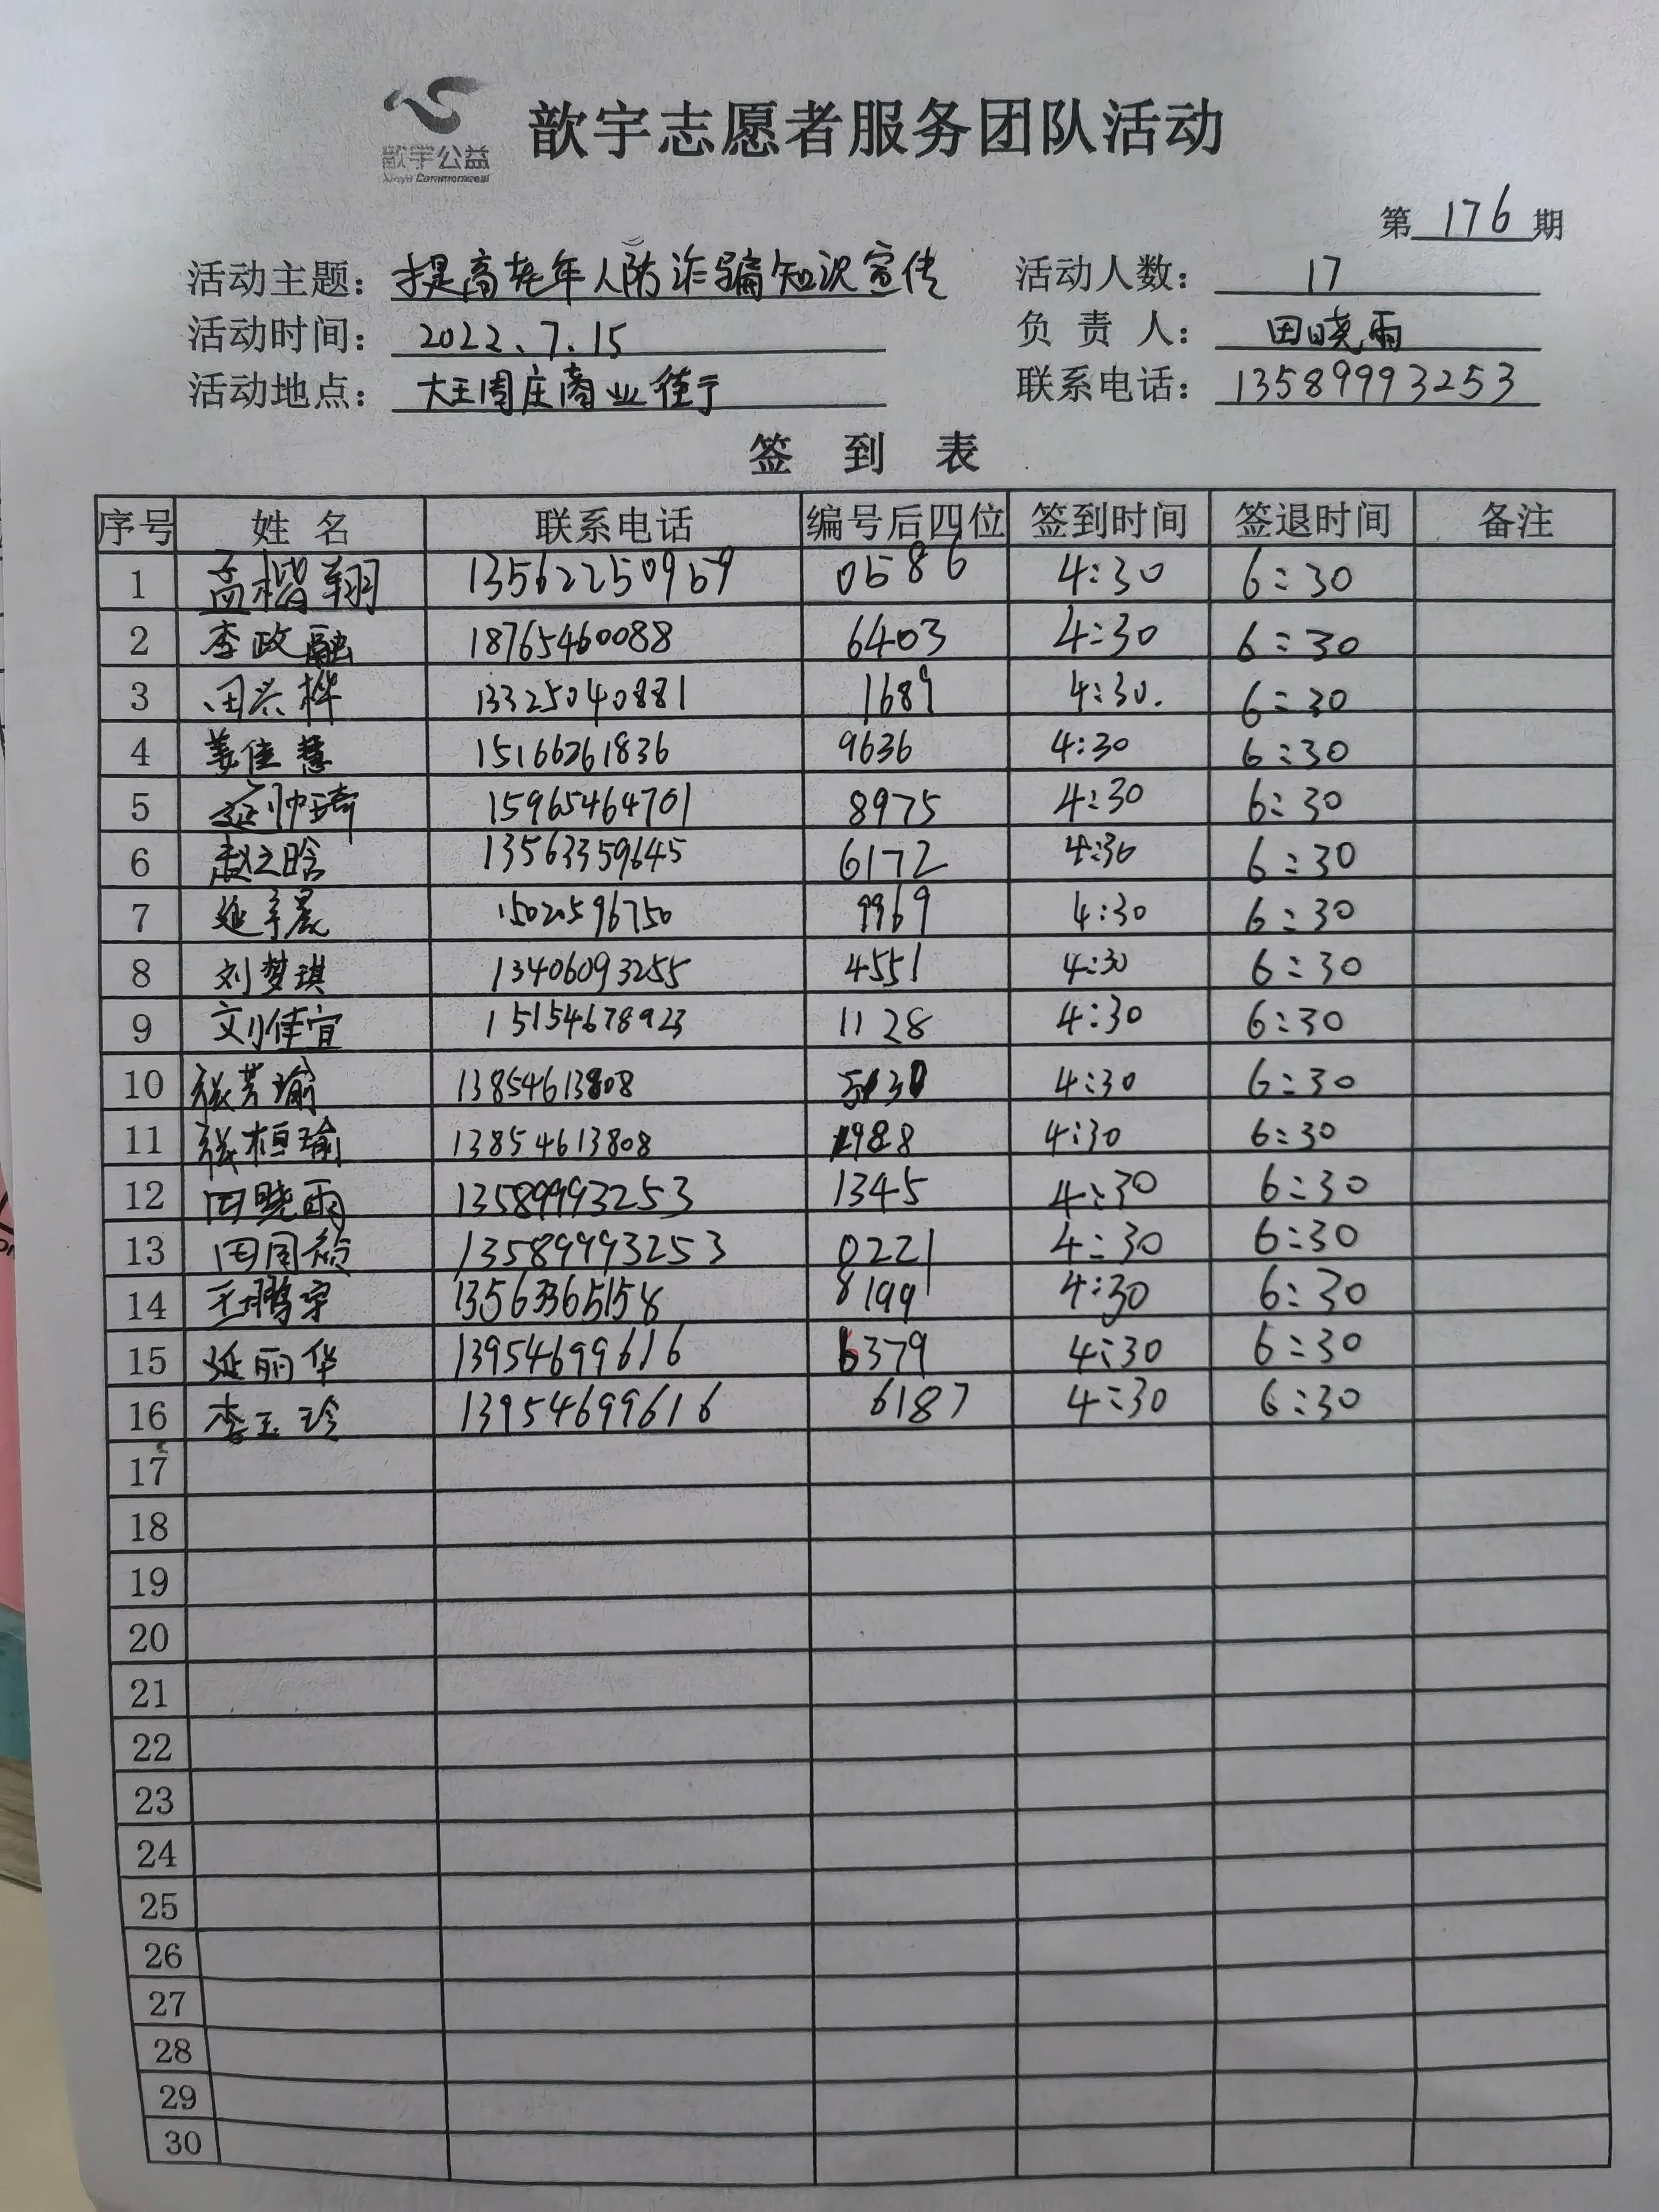 歆宇公益
歆宇志愿者服务团队活动
第 176 期
活动主题：提高老年人防诈骗知识宣传 活动人数：17
活动时间：2022、7.15 负责人：田晓雨
活动地点：大王周庄商业街 联系电话：13589993253
签到表
序号 姓名 联系电话 编号后四位 签到时间 签退时间 备注
1 孟楷翔 13562250969 0586 4:30 6:30
2 李政融 18765460088 6403 4:30 6:30
3 田兴桦 13325040881 1689 4:30. 6:30
4 姜佳慧 15166261836 9636 4:30 6:30
5 延帅琦 15965464701 8975 4:30 6:30
6 赵之晗 13563359645 6172 4:30 6:30
7 延宇晨 15020596750 9969 4:30 6:30
8 刘梦琪 13406093255 4551 4:30 6:30
9 刘佳宜 15154678923 1128 4:30 6:30
10 张芳瑜 13854613808 4:30 6:30
11 张桓瑜 13854613808 1988 4:30 6:30
12 田晓雨 13589993253 1345 4:30 6:30
13 田周 13589993253 0221 4:30 6:30
14 王鹏宇 13563365158 8199 4:30 6:30
15 延丽华 13954699616 6379 4:30 6:30
16 李玉玲 13954699616 6187 4:30 6:30
17
18
19
20
21
22
23
24
25
26
27
28
29
30